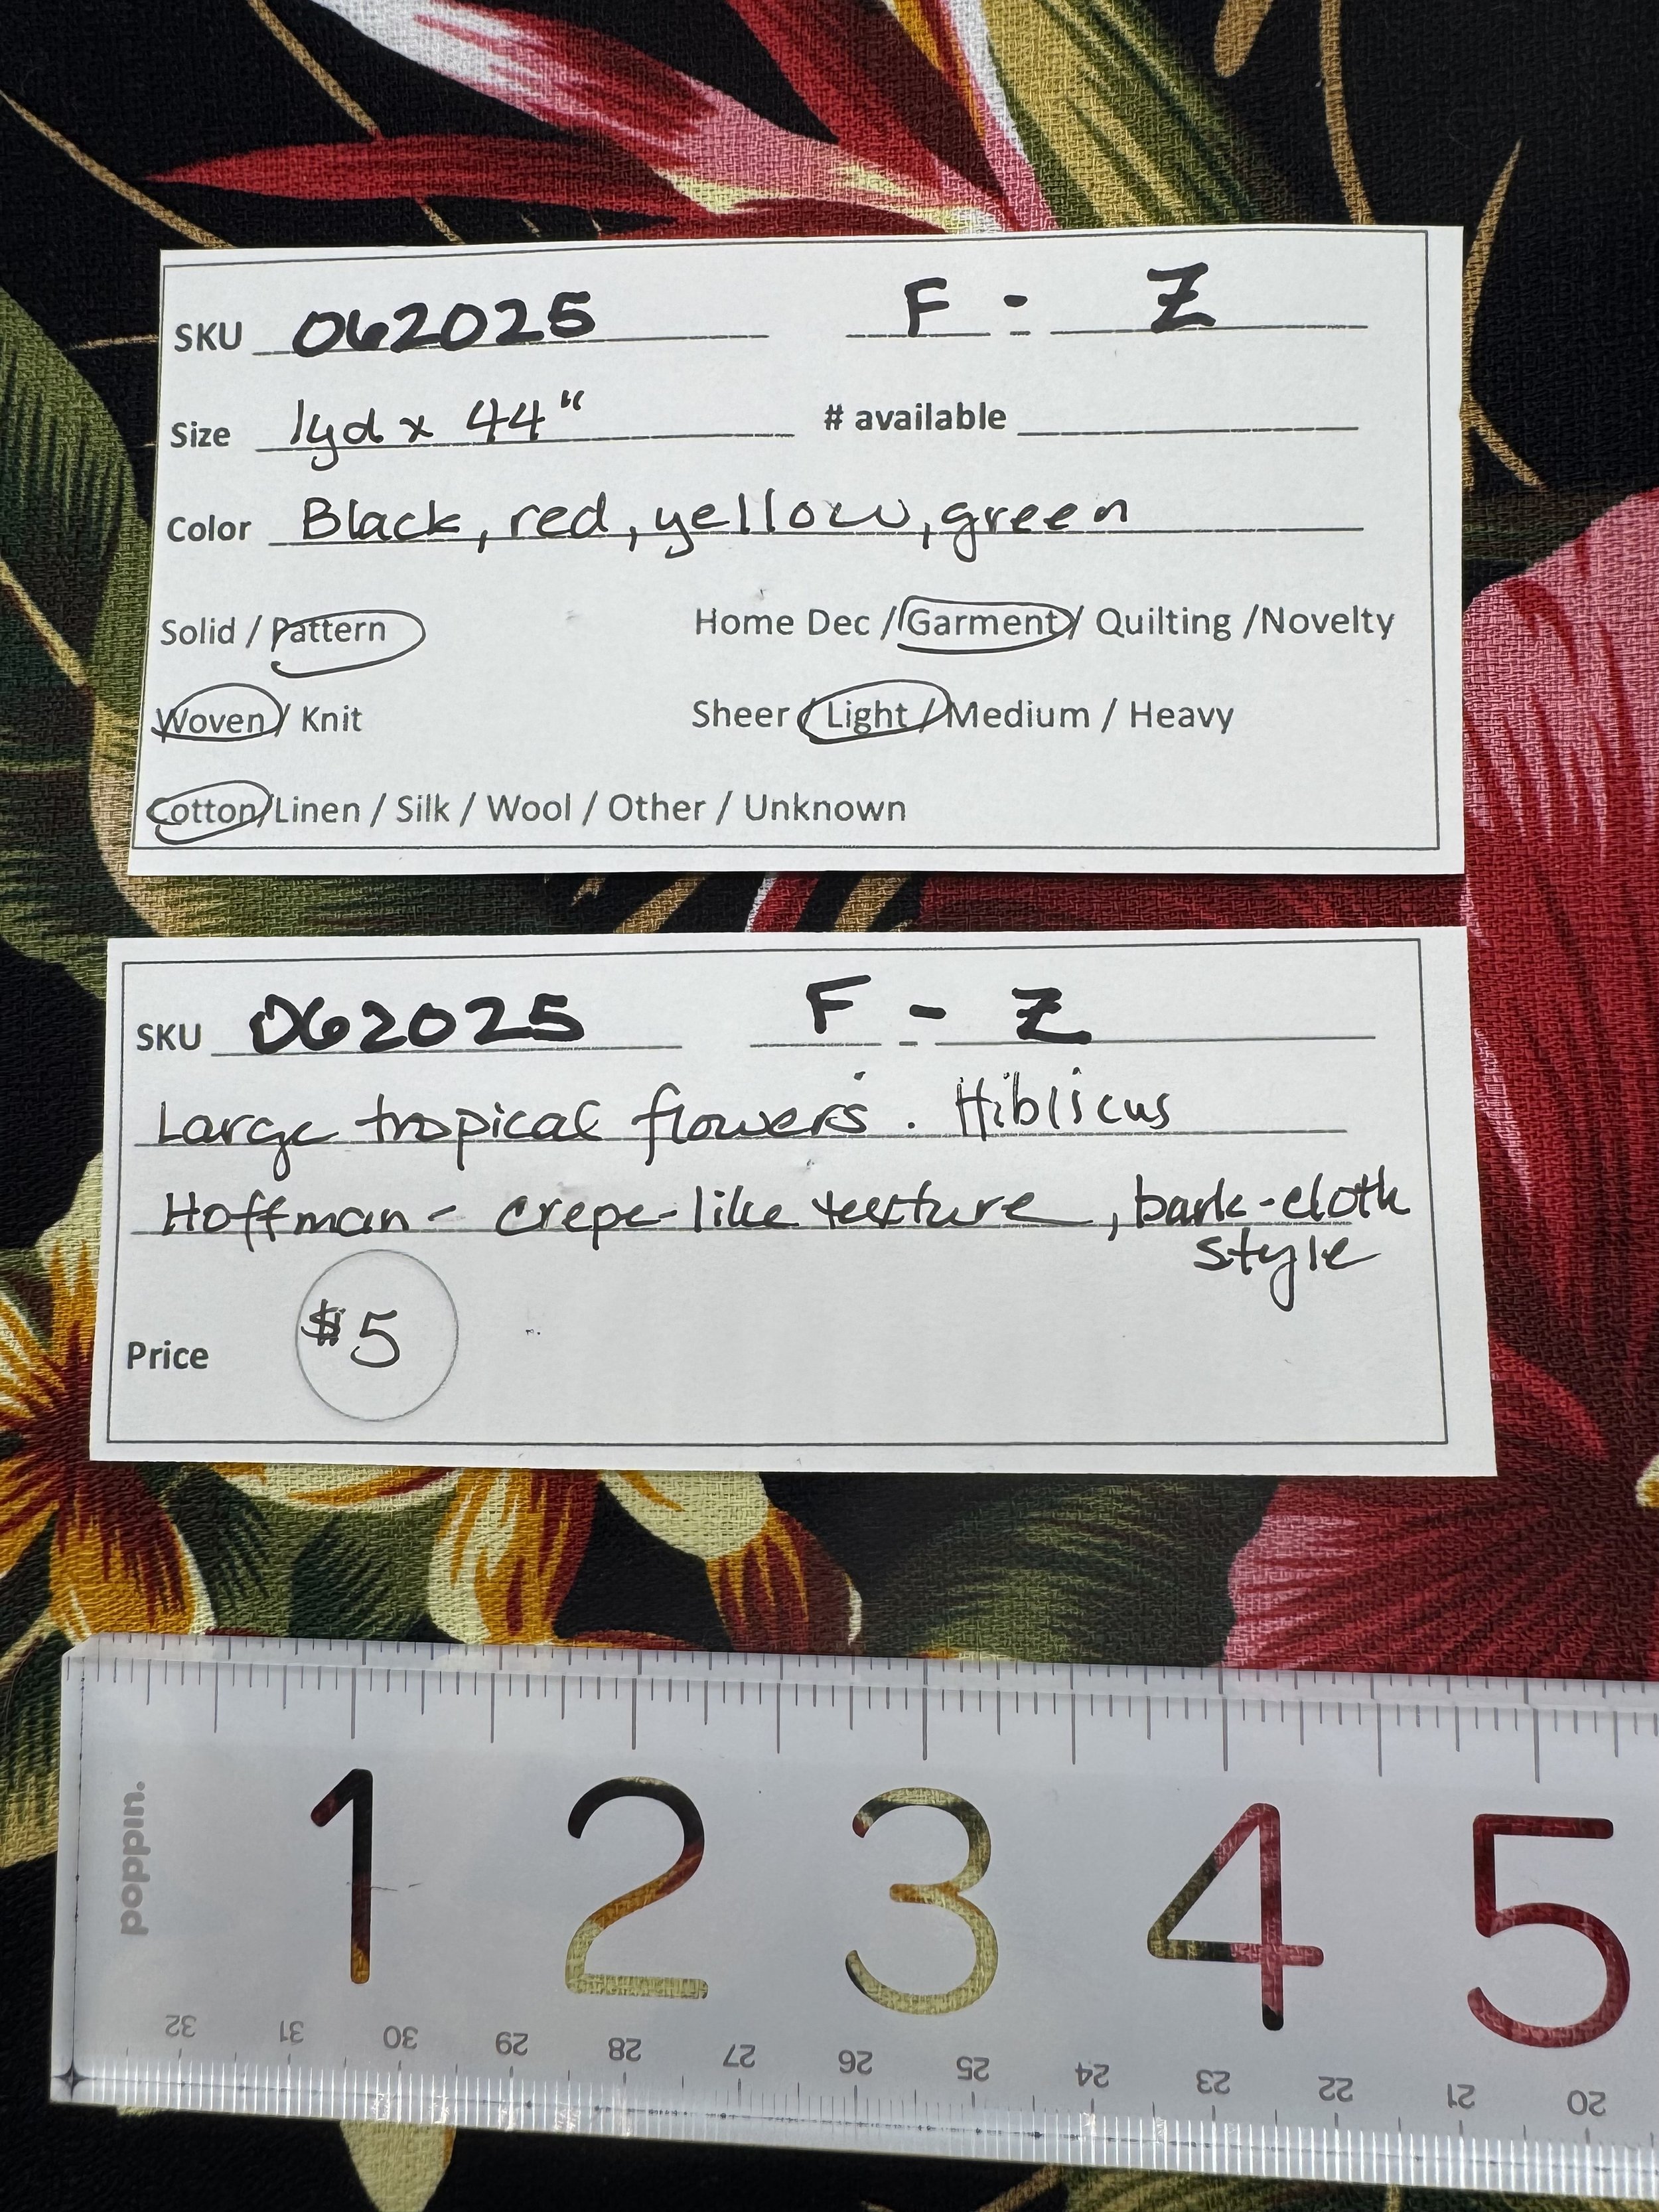 SKU 062025 F - Z
Size 1yd x 44" # available
Color Black, red, yellow, green
Solid / Pattern Home Dec / Garment / Quilting /Novelty
Woven / Knit Sheer / Light / Medium / Heavy
Cotton/Linen / Silk / Wool / Other / Unknown
SKU 062025 F - Z
Large tropical flowers. Hibliscus
Hoffman - crepe-like texture, bark-cloth
style
Price $5
poppin.
1 2 3 4 5
32 31 30 29 28 27 26 25 24 23 22 21 20